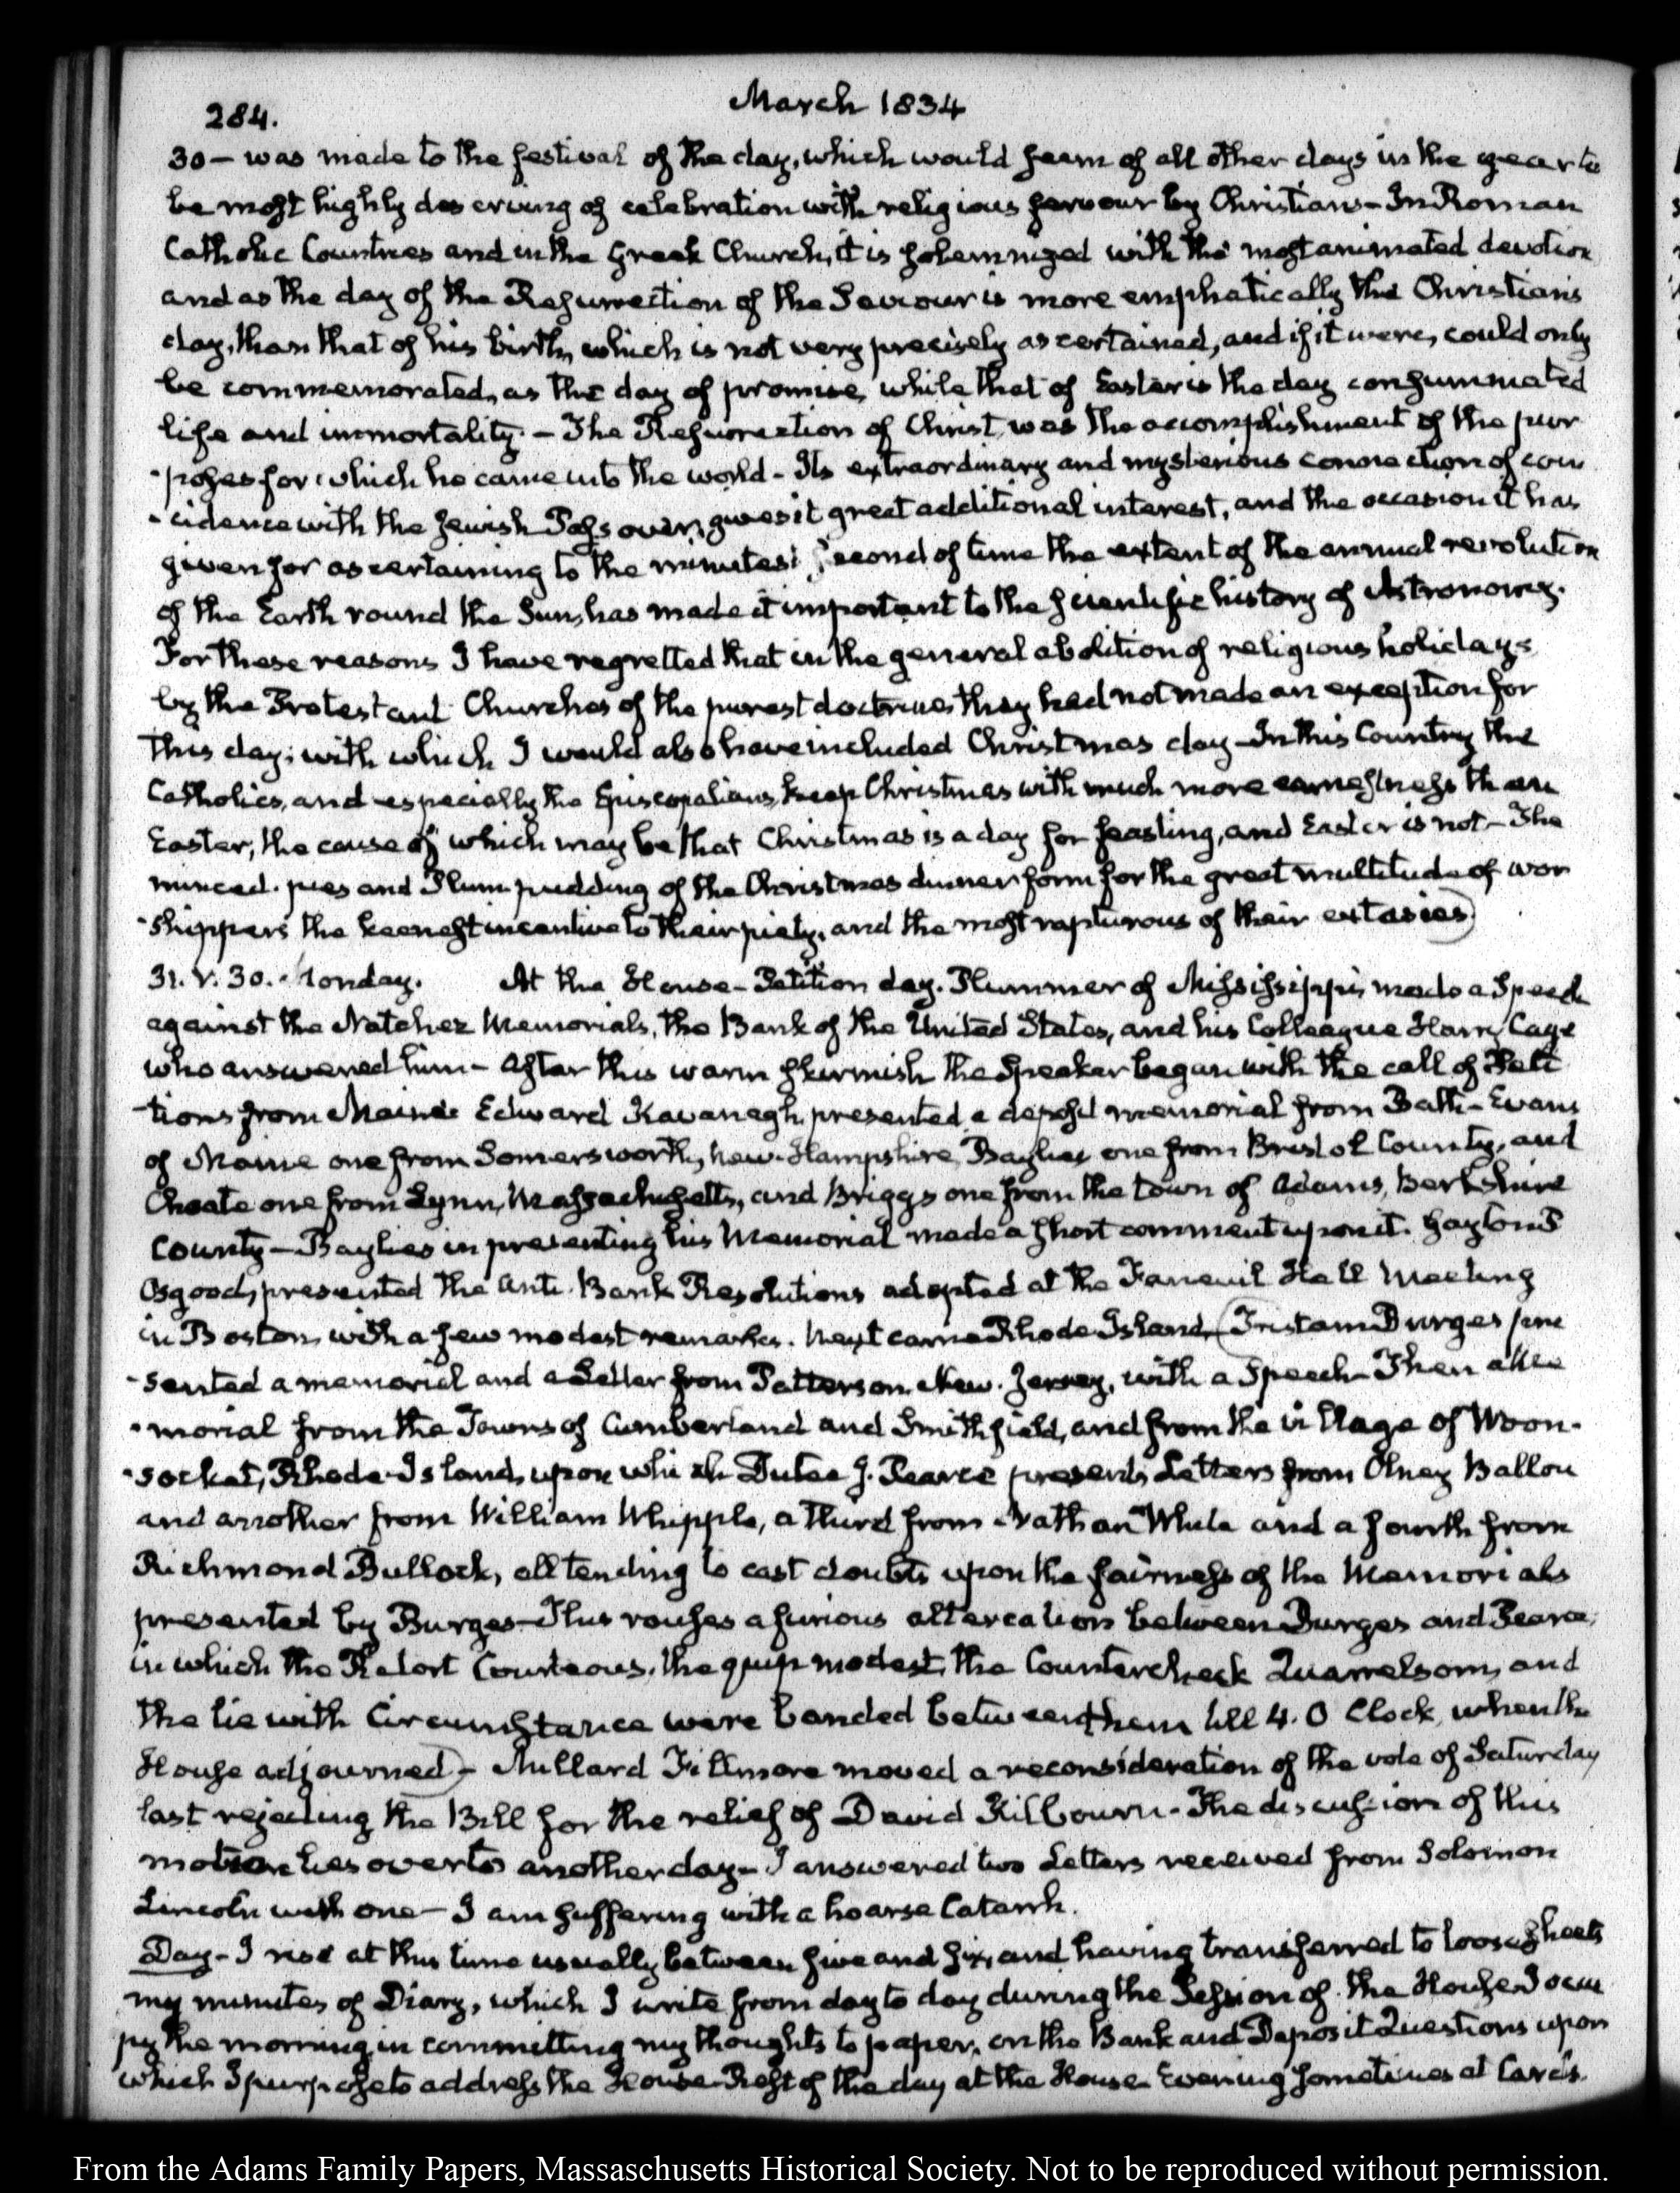 284.
March 1834
30 — was made to the festival of the day, which would seem of all other days in the year to
be most highly deserving of celebration with religious fervour by Christians — In Roman
Catholic Countries and in the Greek Church, it is solemnized with the most animated devotion
and as the day of the Resurrection of the Saviour is more emphatically the Christians
day, than that of his birth, which is not very precisely ascertained, and if it were, could only
be commemorated, as the day of promise, while that of Easter is the day consummated
life and immortality. — The Resurrection of Christ was the accomplishment of the pur
-poses for which he came into the world — Its extraordinary and mysterious connection of coin
-cidence with the Jewish Passover, gives it great additional interest, and the occasion it has
given for ascertaining to the minutest second of time the extent of the annual revolution
of the Earth round the Sun, has made it important to the scientific history of Astronomy.
For these reasons I have regretted that in the general abolition of religious holidays
by the Protestant Churches of the purest doctrines they had not made an exception for
this day; with which I would also have included Christmas day — In this Country the
Catholics, and especially the Episcopalians, keep Christmas with much more earnestness than
Easter, the cause of which may be that Christmas is a day for feasting, and Easter is not — The
minced-pies and Plum pudding of the Christmas dinner form for the great multitude of wor
-shippers the keenest incentive to their piety, and the most rapturous of their extasies)
31. V. 30. Monday. At the House — Petition day. Plummer of Mississippi, made a Speech
against the Natchez Memorials, the Bank of the United States, and his Colleague Harry Cage
who answered him — After this warm skirmish the Speaker began with the call of Peti
-tions from Maine Edward Kavanagh, presented a deposit memorial from Bath — Evans
of Maine one from Somersworth, New-Hampshire, Baylies one from Bristol County, and
Choate one from Lynn, Massachusetts, and Briggs one from the town of Adams, Berkshire
County — Baylies in presenting his Memorial made a short comment upon it. Gayton P
Osgood, presented the Anti-Bank Resolutions adopted at the Faneuil Hall Meeting
in Boston, with a few modest remarks. Next came Rhode Island, (Tristam Burges pre
-sented a memorial and a Letter from Patterson New-Jersey, with a Speech — Then a Me
-morial from the Towns of Cumberland and Smithfield, and from the village of Woon-
-socket, Rhode-Island, upon which Dutee J. Pearce presents Letters from Olney Ballou
and another from William Whipple, a third from Nathan White and a fourth from
Richmond Bullock, all tending to cast doubts upon the fairness of the Memorials
presented by Burges — This rouses a furious altercation between Burges and Pearce,
in which the Retort Courteous, the quip modest, the Countercheck Quarrelsom, and
the lie with Circumstance were banded between them till 4. O Clock, when the
House adjourned) — Millard Fillmore moved a reconsideration of the vote of Saturday
last rejecting the Bill for the relief of David Kilbourn — The discussion of this
motion lies over to another day — I answered two Letters received from Solomon
Lincoln with one — I am suffering with a hoarse Catarrh.
Day — I rise at this time usually between five and six, and having transferred to loose sheets
my minutes of Diary, which I write from day to day during the Session of the House I occu
py the morning in committing my thoughts to paper, on the Bank and Deposit Questions upon
which I purpose to address the House — Rest of the day at the House — Evening sometimes at Cards.
From the Adams Family Papers, Massachusetts Historical Society. Not to be reproduced without permission.